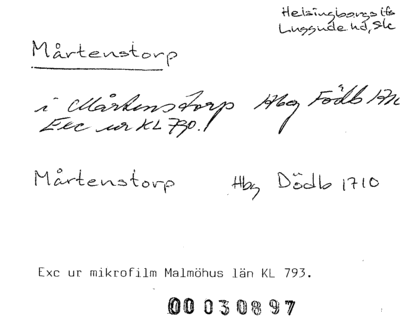 Helsingborgs ifs
Luggude hd, Sk
Mårtenstorp
i Mårtenstorp Hbg Födb
Exc ur KL 790.
Mårtenstorp Hbg Dödb 1710
Exc ur mikrofilm Malmöhus län KL 793.
00 030897